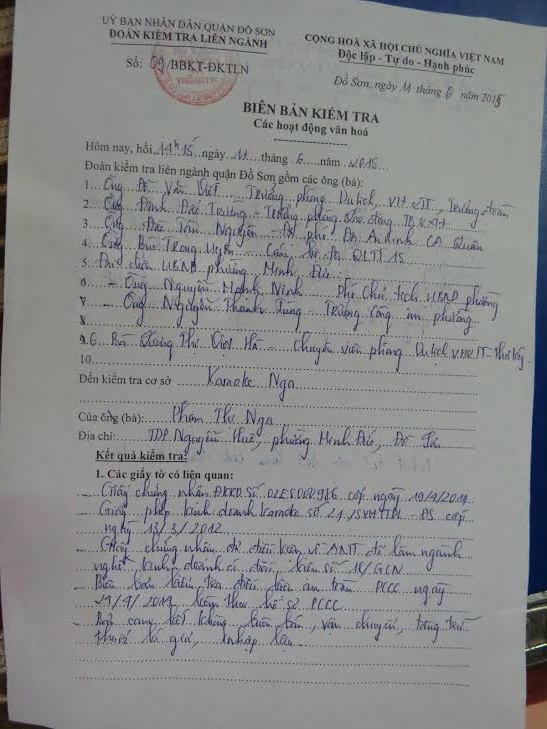 UỶ BAN NHÂN DÂN QUẬN ĐỒ SƠN
ĐOÀN KIỂM TRA LIÊN NGÀNH
Số: 09/BBKT-ĐKTLN
CỘNG HOÀ XÃ HỘI CHỦ NGHĨA VIỆT NAM
Độc lập - Tự do - Hạnh phúc
Đồ Sơn, ngày 11 tháng 6 năm 2015
BIÊN BẢN KIỂM TRA
Các hoạt động văn hoá
Hôm nay, hồi 14h15 ngày 11 tháng 6 năm 2015
Đoàn kiểm tra liên ngành quận Đồ Sơn gồm các ông (bà):
1 Ông Văn Việt - Trưởng phòng Du lịch, VH, TT, Trưởng đoàn
2 Ông Đinh Đắc Trường - Trưởng phòng
3 Ông Đắc Tấn Nguyên - An ninh CA Quận
4 Ông Bùi Trọng Uyên - Cán bộ QLTT 15
5 Đại diện UBND phường Minh Đức
6 - Ông Nguyễn Mạnh Ninh - Phó Chủ tịch UBND phường
7 - Ông Nguyễn Thanh Tùng - Trưởng công an phường
8
9.6 Bà Thị Việt Hà - chuyên viên phòng Du lịch VHTT - Thư ký
10
Đến kiểm tra cơ sở Karaoke Nga
Của ông (bà): Phạm Thị Nga
Địa chỉ: TDP Nguyễn Huệ, phường Minh Đức, Đồ Sơn
Kết quả kiểm tra:
1. Các giấy tờ có liên quan:
- Giấy chứng nhận ĐKKD số cấp ngày 19/4/2011
- Giấy phép kinh doanh karaoke số 21/SVHTTDL - ĐS cấp
ngày 13/3/2012
- Giấy chứng nhận đủ điều kiện về ANTT để làm ngành
nghề kinh doanh có điều kiện số 16/GCN
- Biên bản kiểm tra điều kiện an toàn PCCC ngày
29/4/2014, kiểm tra hồ sơ PCCC
- Bản cam kết không buôn bán, vận chuyển, tàng trữ
thuốc lá giả, nhập lậu.